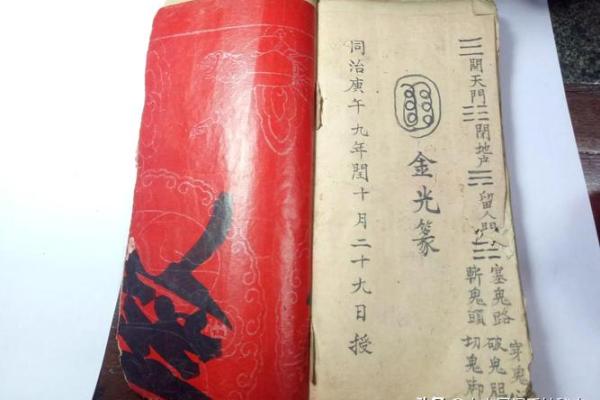 開天門 閉地户 留人門
穿鬼
塞鬼路 破鬼胆
斬鬼頭 切鬼脚
金光篆
同治庚午九年閏十月二十九日授